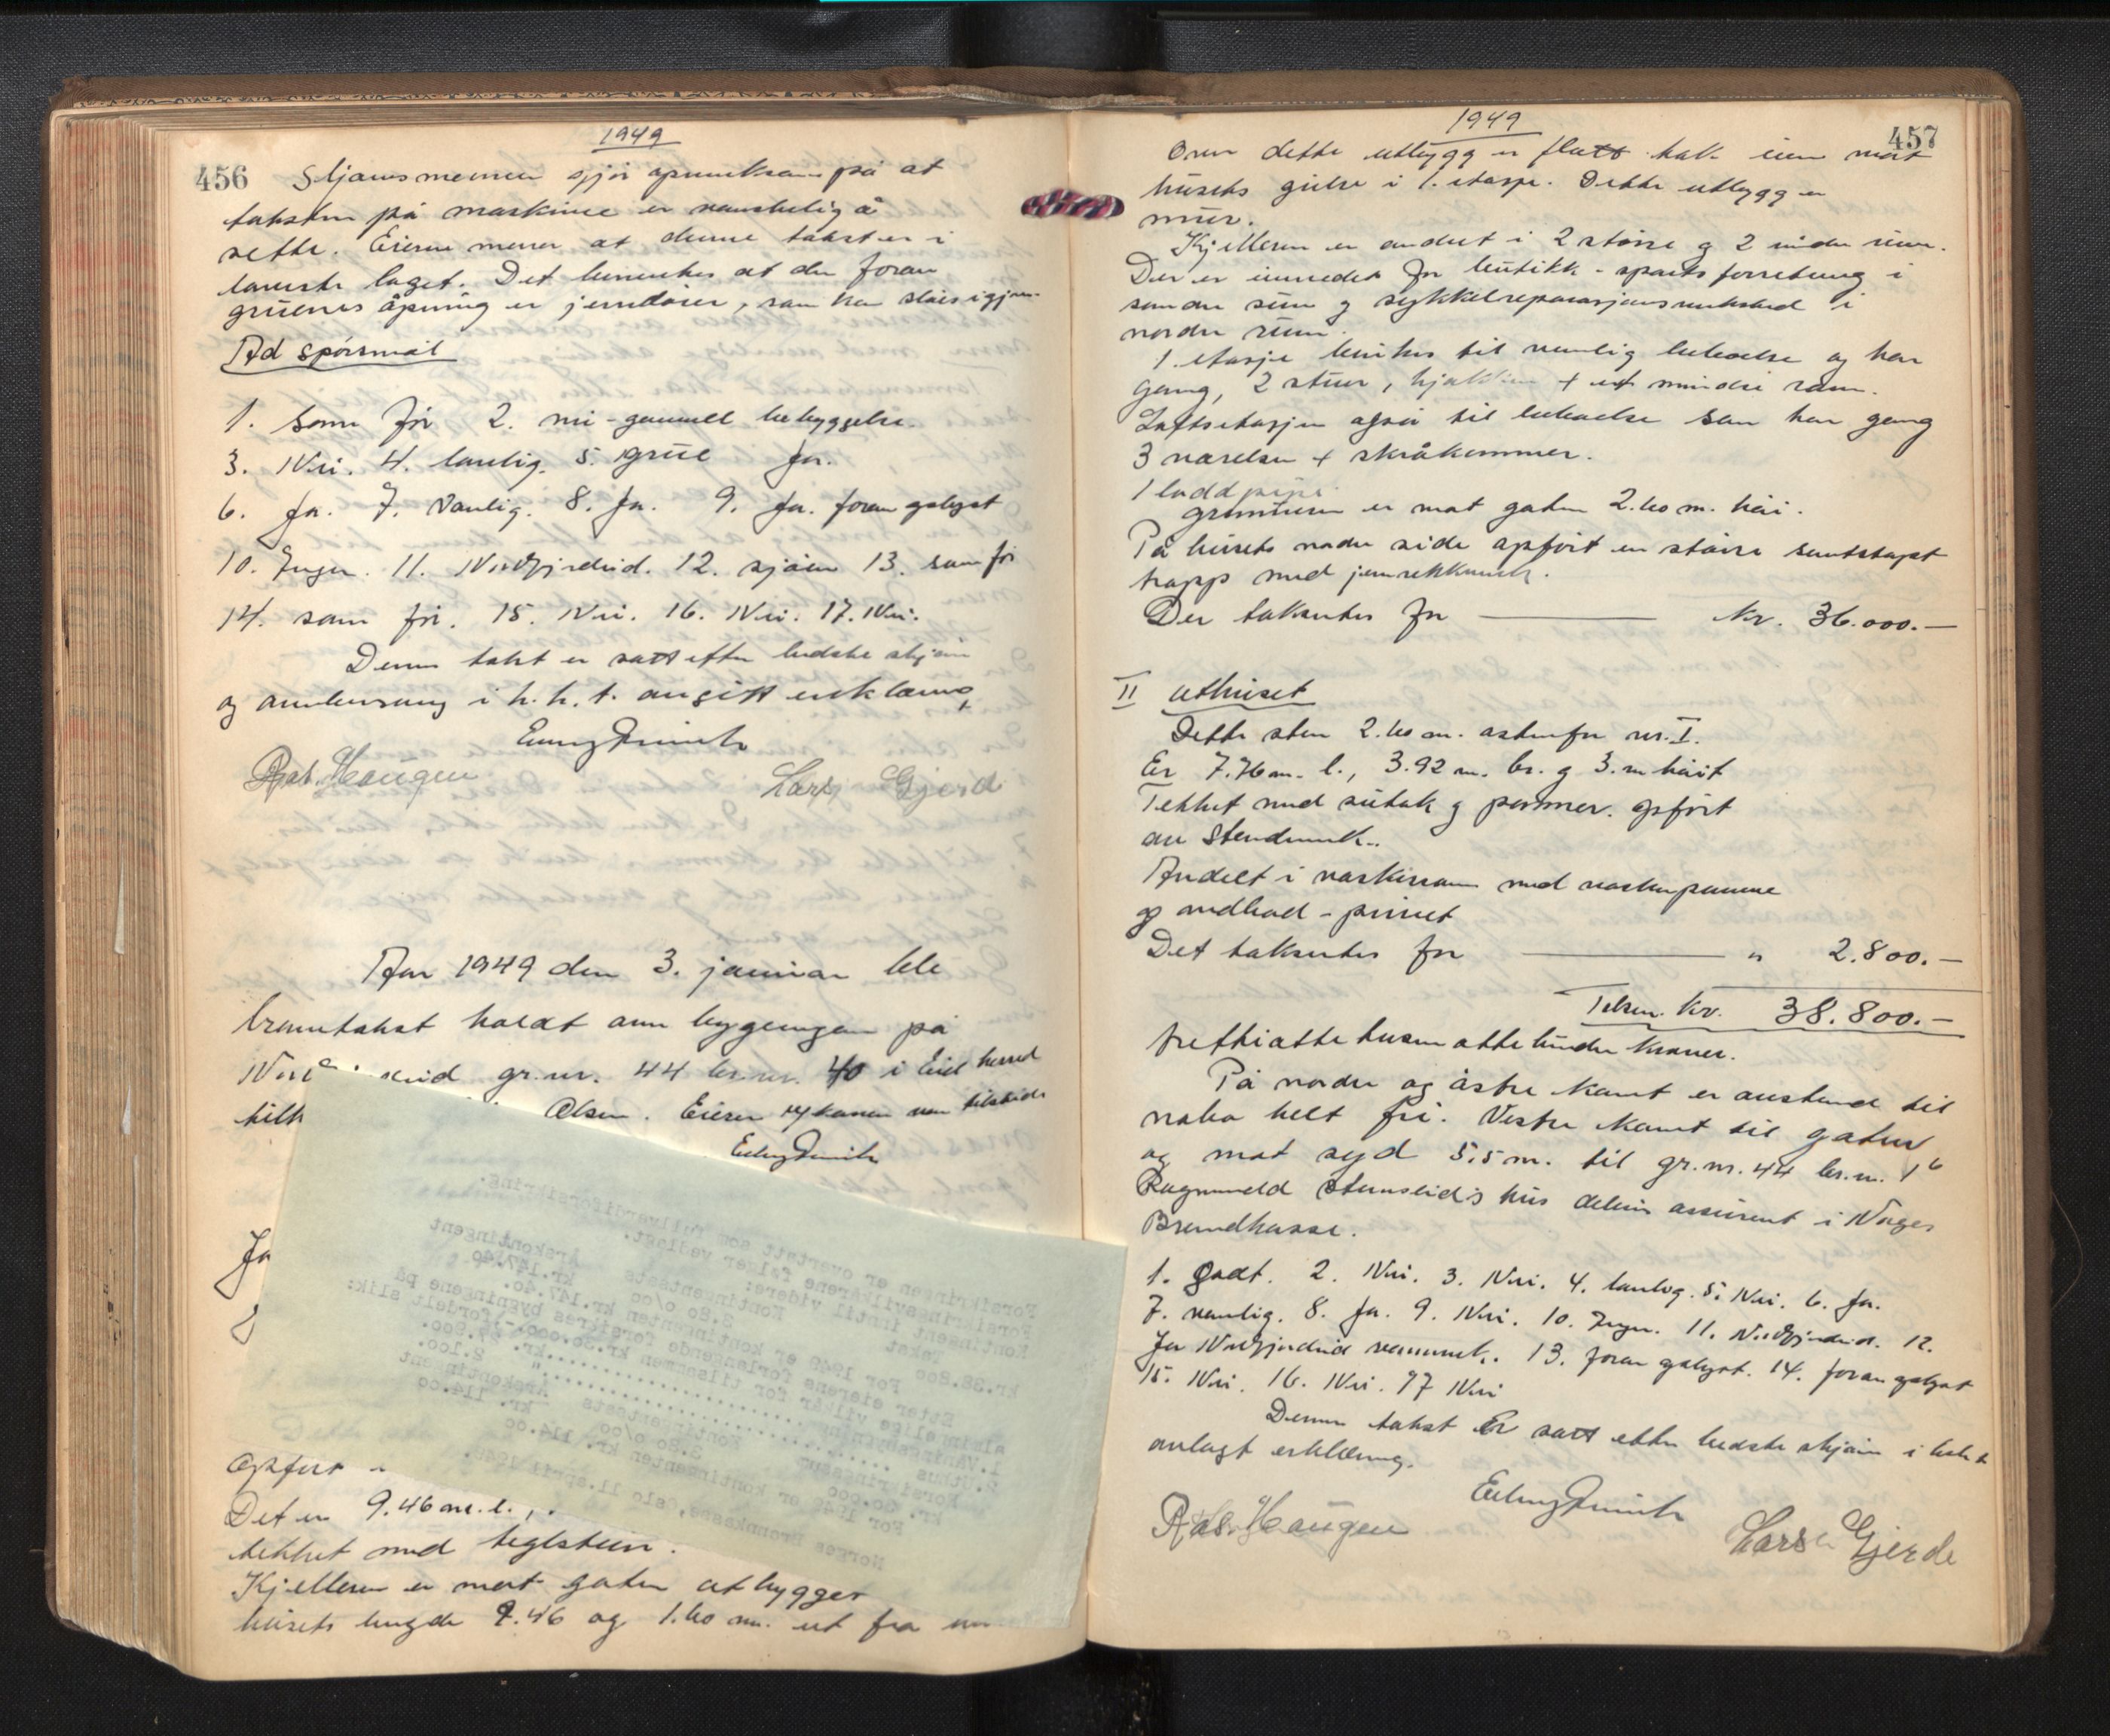 1949
456
Skjønsmennene gjør opmerksom på at
taksten på maskinene er vanskelig å
sette. Eieren mener at denne takst er i
laveste laget. Det bemerkes at der foran
gruenes åpning er jerndører, som kan slåes igjen.
Ad spørsmål
1. som før 2. ny-gammel bebyggelse.
3. Nei. 4. lovlig. 5. grue Ja.
6. Ja. 7. Vanlig. 8. Ja. 9. Ja. foran oplyst
10. Ingen. 11. Nordfjordeid. 12. sjøen 13. som før
14. som før. 15. Nei. 16. Nei. 17. Nei.
Denne takst er satt efter bedste skjøn
og overbevisning i h. h. t. avgitt erklæring
Ras. Haugen
Lars Gjerde
Aar 1949 den 3. januar ble
branntakst holdt over bygningen på
gr.nr. 44 br.nr. 40 i Eid herred
tilh Olsen. Eieren var tilstede
Ja
Forsikringen er overtatt som fullverdiforsikring.
Forsikringsvilkårene følger vedlagt.
Kontingent inntil videre:
Takst Kontingentsats Årskontingent
kr.38.800 3.80 o/oo kr.147.40
For 1949 er kontingenten kr.147.40.
Etter eierens forlangende forsikres bygningene på
alminnelige vilkår for tilsammen kr.30.000.- fordelt slik:
1. Våningsbygning kr. 27.900.
2. Uthus " 2.100.
Forsikringssum Kontingentsats Årskontingent
kr. 30.000 3.80 o/oo kr. 114.00
For 1949 er kontingenten kr. 114.00.
Norges Brannkasse, Oslo 11.april 1949.
Opført
Det er 9.46 m. l.,
tekket med teglstein.
Kjelleren er mot gaten utbygget
husets lengde 9.46 og 1.60 m. ut fra
1949
457
Over dette utbygg er flatt tak
husets gulv i 1. etasje. Dette utbygg er
mur.
Kjelleren er anderet i 2 større og 2 mindre rum.
Der er innredet for butikk - sportsforretning i
søndre rum og sykkelreparasjonsverksted i
nordre rum.
1. etasje brukes til vanlig beboelse og har
gang, 2 stuer, kjøkken + et mindre rom.
Loftsetasjen også til beboelse som har gang
3 værelser + skråkammer.
1 ladd pipe.
grunnmuren er mot gaten 2.60 m. høi.
På husets nordre side opført en større sementstøpt
trapp med jernrekkverk.
Der takseres for — kr. 36.000.—
II Uthuset
Dette sten 2.60 m. østenfor nr. I.
Er 7.76 m. l., 3.92 m. br. og 3. m høit
Tekket med sutak og panner. opført
av Stenderverk.
Andelt i vaskerom med vaskepanne
og vedbod - privet
Det takseres for — " 2.800.—
Tilsm. kr. 38.800.—
trettiåtte tusen åtte hundre kroner.
På nordre og østre kant er avstand til
nabo helt fri. Vestre kant til gaten
og mot syd 5.5 m. til gr.nr. 44 br.nr. 16
Ragnvald Stenseid's hus delvis assurert i Norges
Brandkasse.
1. godt. 2. Nei. 3. Nei. 4. lovlig. 5. Nei. 6. Ja.
7. vanlig. 8. Ja. 9. Nei. 10. Ingen. 11. Nordfjordeid. 12.
Ja Nordfjordeid vannverk. 13. foran oplyst. 14. foran oplyst
15. Nei. 16. Nei. 17 Nei
Denne takst er satt etter bedste skjøn i
avlagt erklæring.
Ras. Haugen
Lars Gjerde